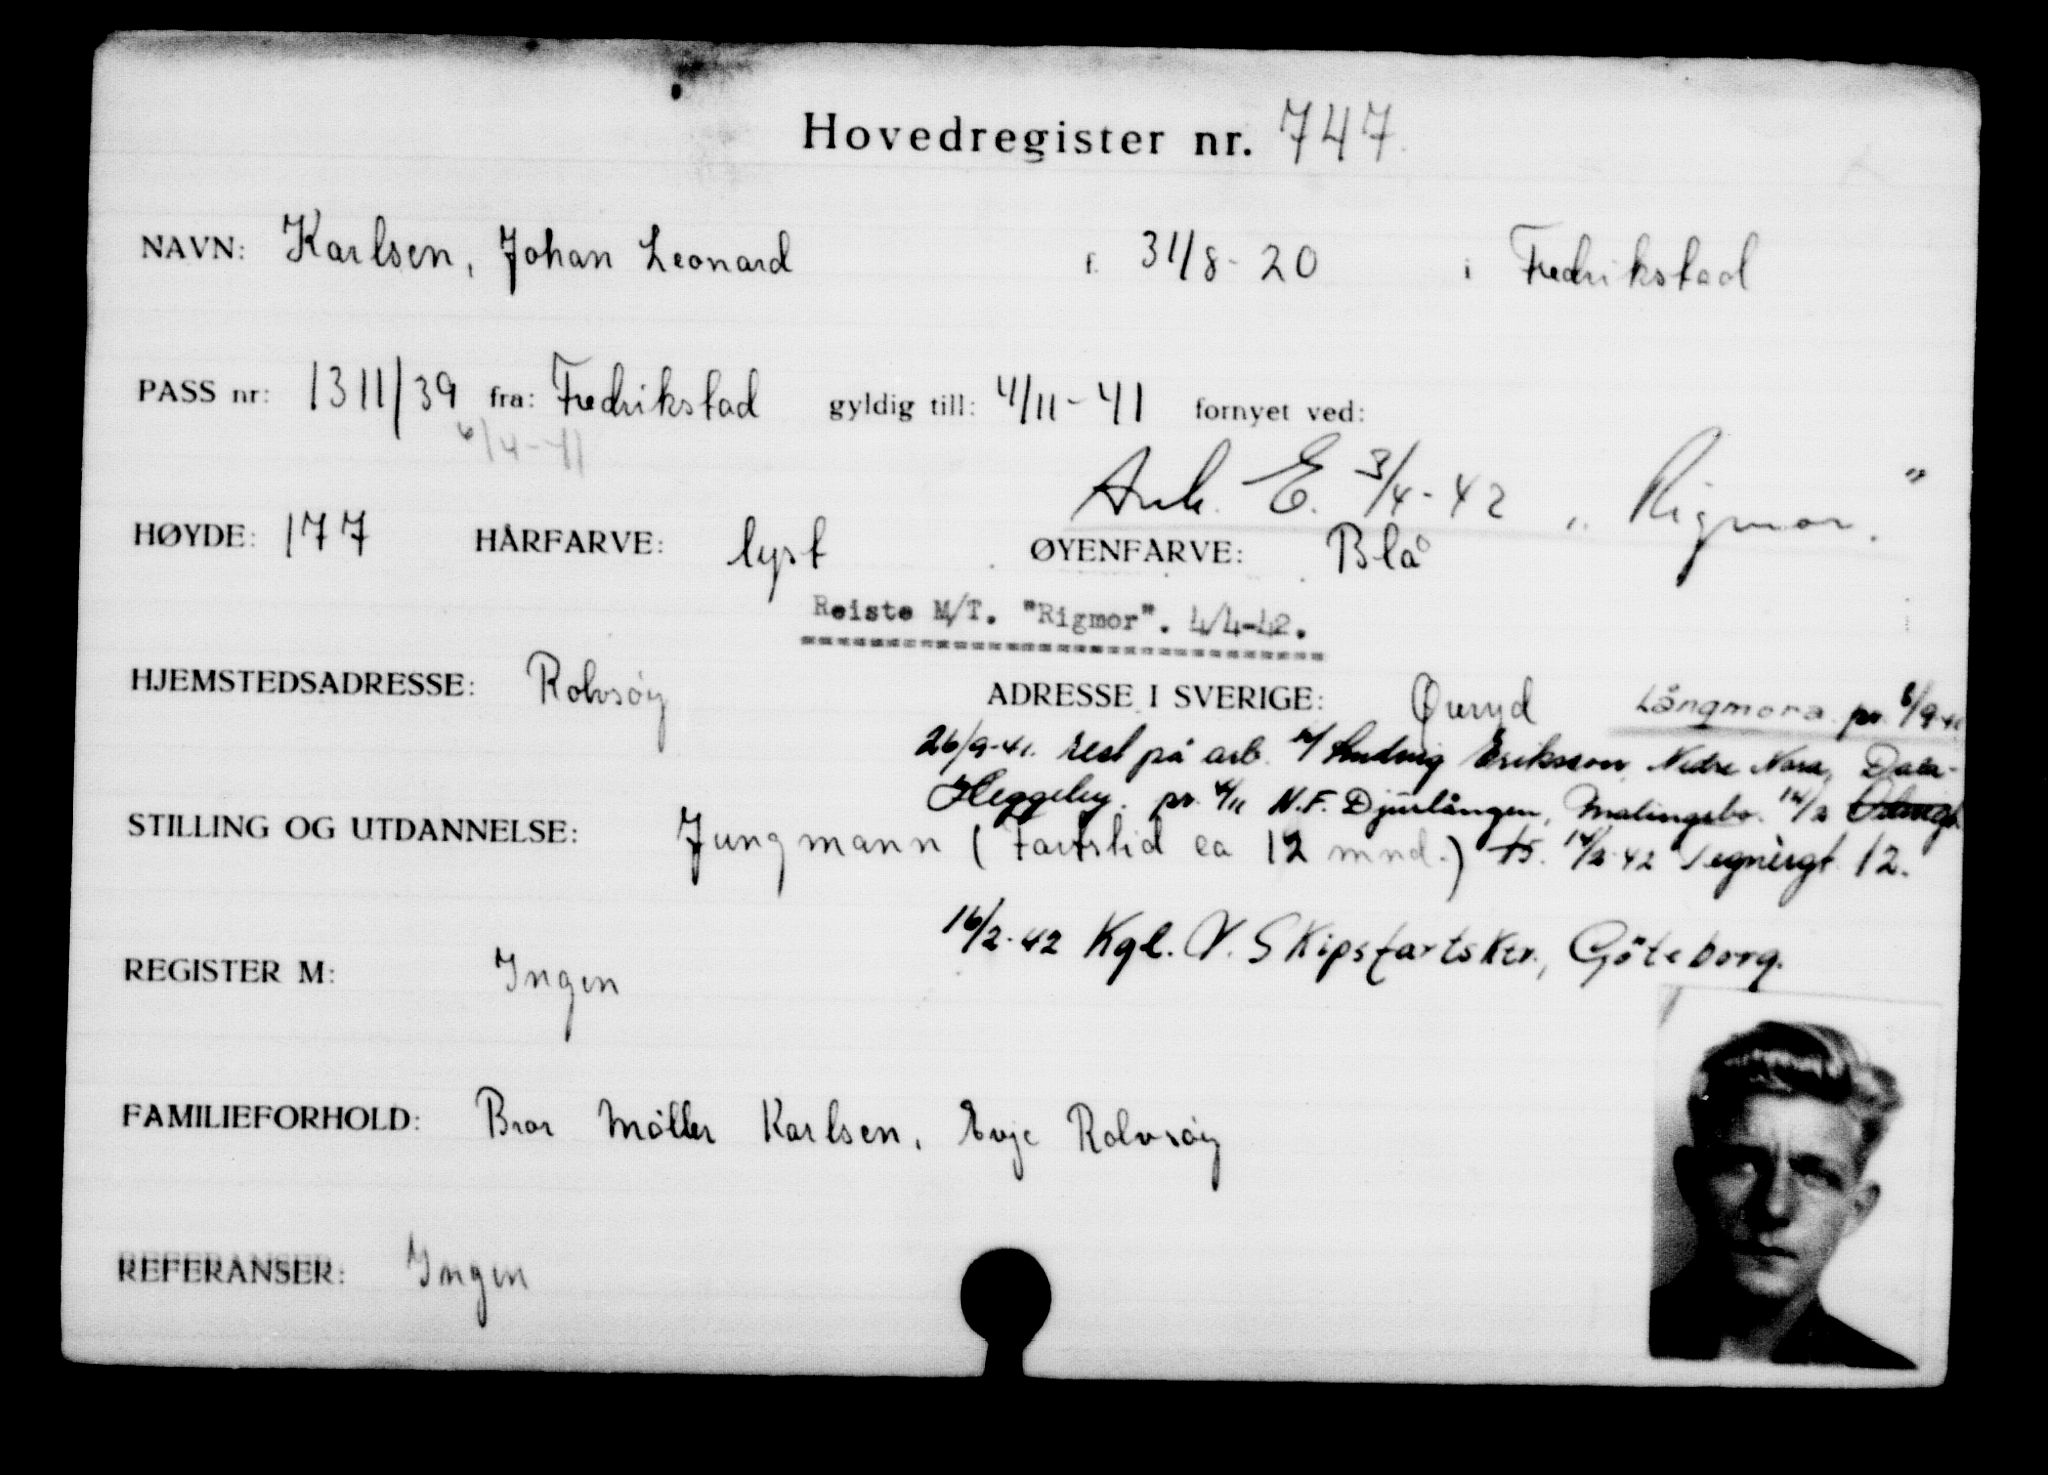 Hovedregister nr. 747.
NAVN: Karlsen, Johan Leonard f. 31/8-20 i Fredrikstad
PASS nr: 1311/39 fra: Fredrikstad gyldig till: 4/11-41 fornyet ved:
6/4-41
Ank. E. 3/4-42 "Rigmor."
HØYDE: 177 HÅRFARVE: lyst ØYENFARVE: Blå
Reiste M/T. "Rigmor". 4/4-42.
HJEMSTEDSADRESSE: Rolvsöy ADRESSE I SVERIGE: Öreryd Långmora pr. 8/9-41
26/9-41. rest på arb. Ludvig Eriksson, Nedre Nora, Dala-
Heggeby. pr. 4/11 N.F. Djurlången, Malingsbo. 14/2
STILLING OG UTDANNELSE: Jungmann (Fartstid ca 12 mnd.) 14/2-42 Tegnèrgt 12.
16/2-42 Kgl. N. Skipsfartsktr., Göteborg.
REGISTER M: Ingen
FAMILIEFORHOLD: Bror Möller Karlsen, Evje Rolvsöy
REFERANSER: Ingen